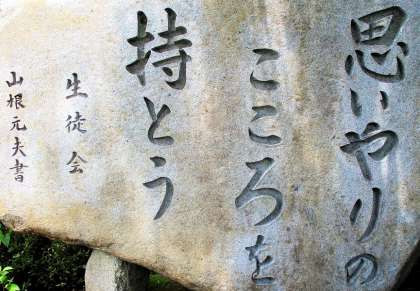 思いやりの
こころを
持とう
生徒会
山根元夫書